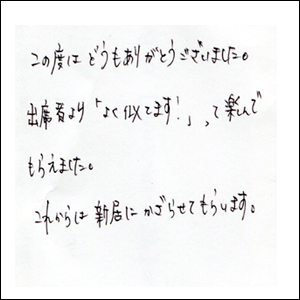 この度はどうもありがとうございました。
出席者より「よく似てます!」、って楽しんで
もらえました。
これからは新居にかざらせてもらいます。